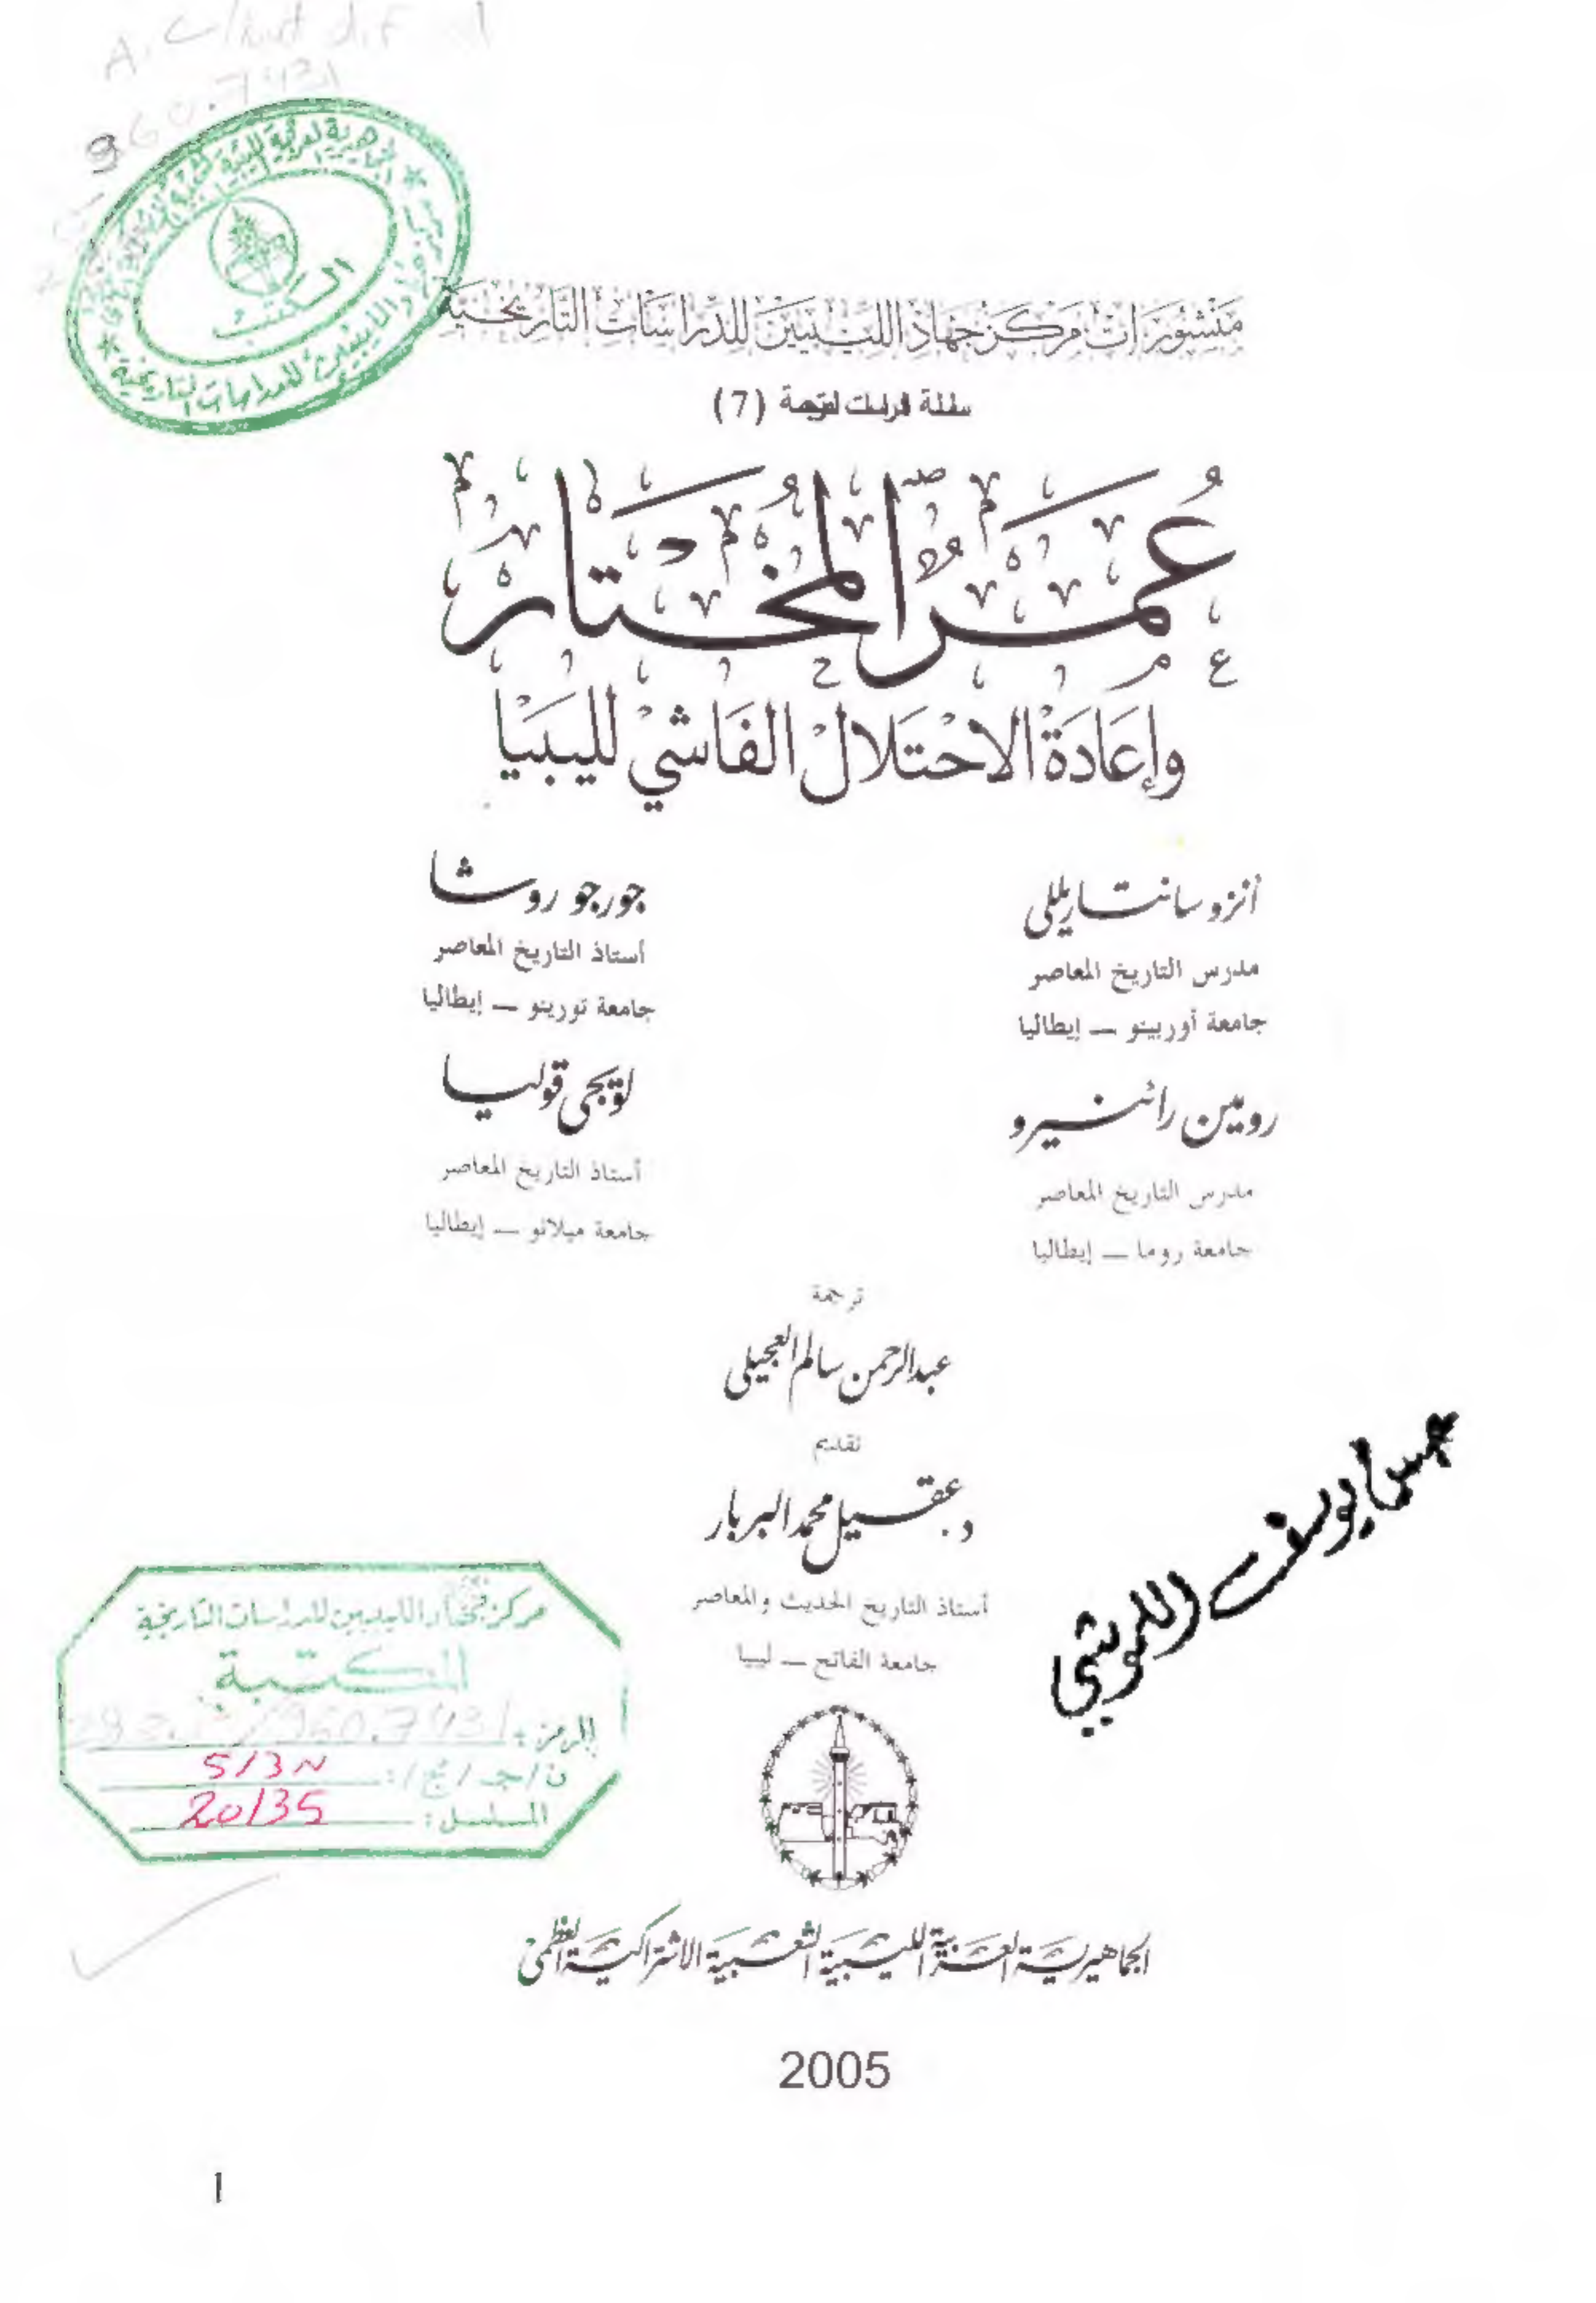 منشورات مركز جهاد الليبيين للدراسات التاريخية
سلسلة الدراسات المترجمة (7)
عُمَرُ المُختَار
وإعَادَة الاحْتلال الفَاشيْ لليبيَا
أنزو سانتاريللي
مدرس التاريخ المعاصر
جامعة أوربينو — إيطاليا
جورجو روشا
أستاذ التاريخ المعاصر
جامعة تورينو — إيطاليا
رومين رائنيرو
مدرس التاريخ المعاصر
جامعة روما — إيطاليا
لويجي قوليا
أستاذ التاريخ المعاصر
جامعة ميلانو — إيطاليا
ترجمة
عبدالرحمن سالم العجيلي
تقديم
د. عقيل محمد البربار
أستاذ التاريخ الحديث والمعاصر
جامعة الفاتح — ليبيا
يوسف اللموشي
مركز جهاد الليبيين للدراسات التاريخية
المكتبة
الرمز: 960.7431
ن/جـ/ مج/: 5/3N
المسلسل: 20135
الجماهيرية العربية الليبية الشعبية الاشتراكية العظمى
2005
أ